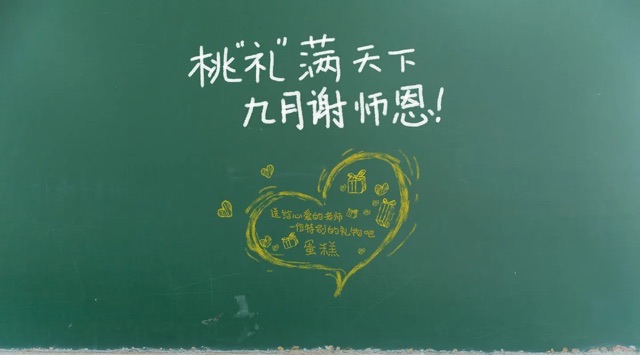 桃"礼"满天下
九月谢师恩!
送给心爱的老师
一件特别的礼物吧
蛋糕